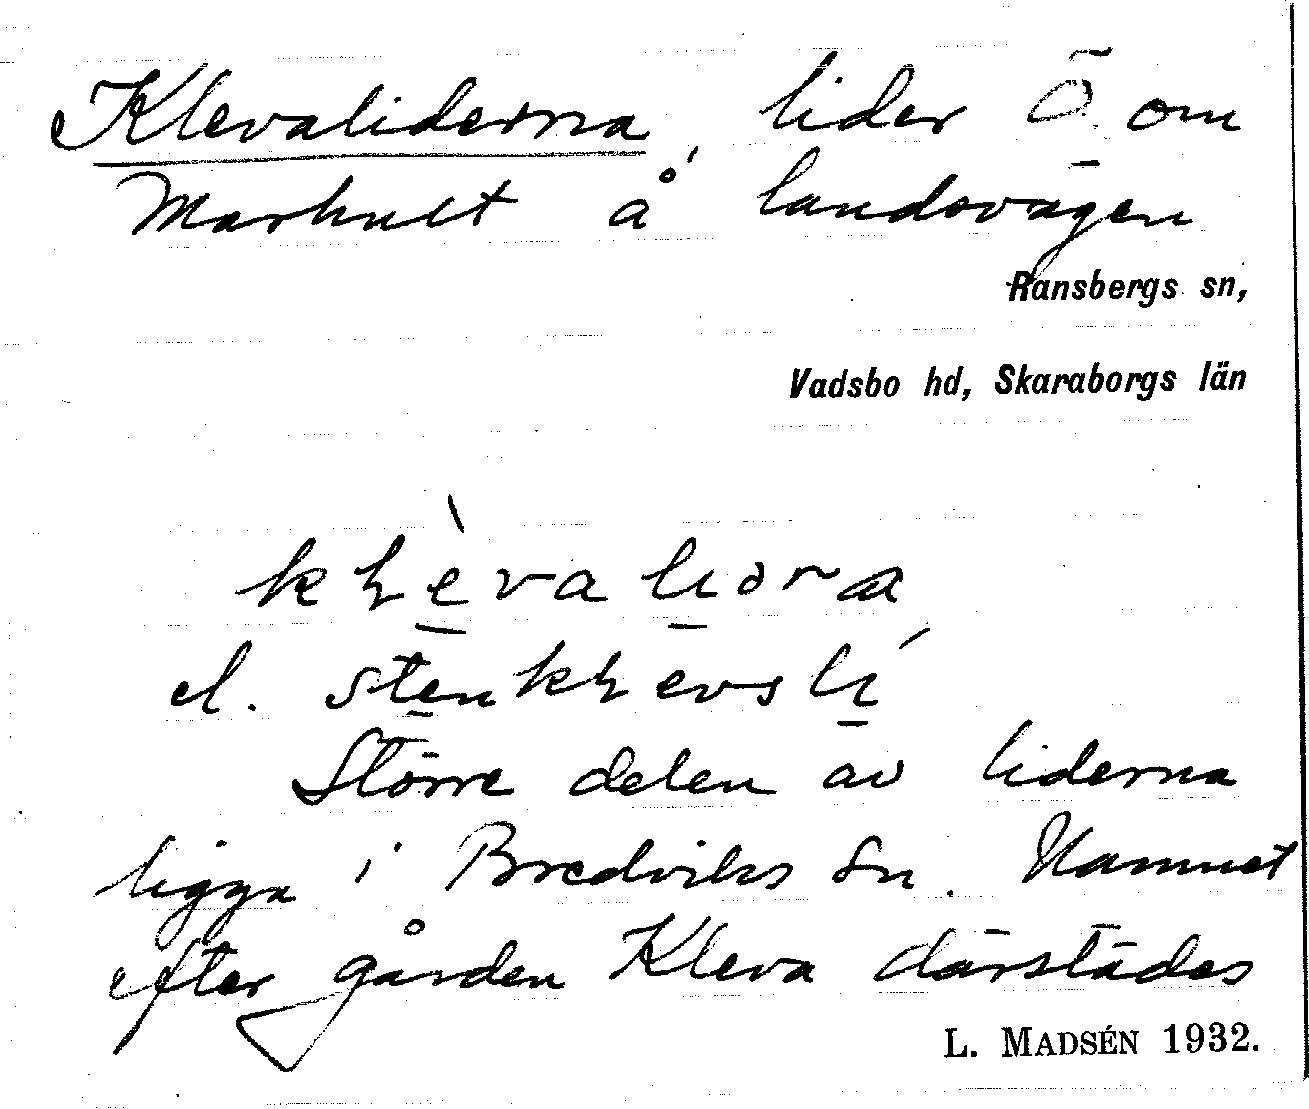 Klevaliderna, lider Ö om
Markult å landsvägen
Ransbergs sn,
Vadsbo hd, Skaraborgs län
el.
Större delen av liderna
ligga i Bredviks sn. Namnet
efter gården Kleva därstädes
L. MADSÉN 1932.